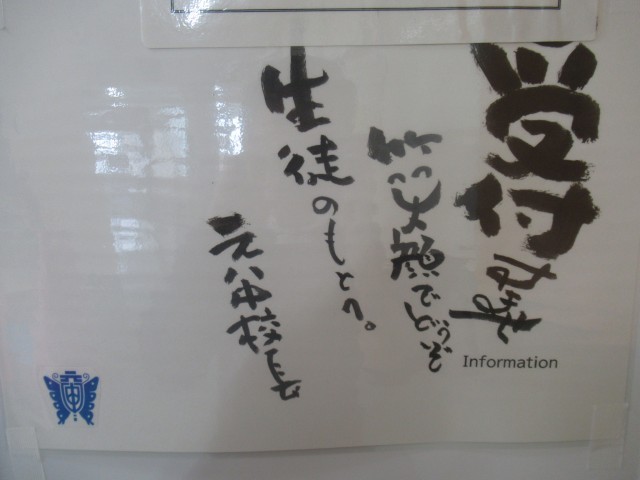 受付すませ
笑顔でどうぞ
生徒のもとへ。
元八中校長
Information